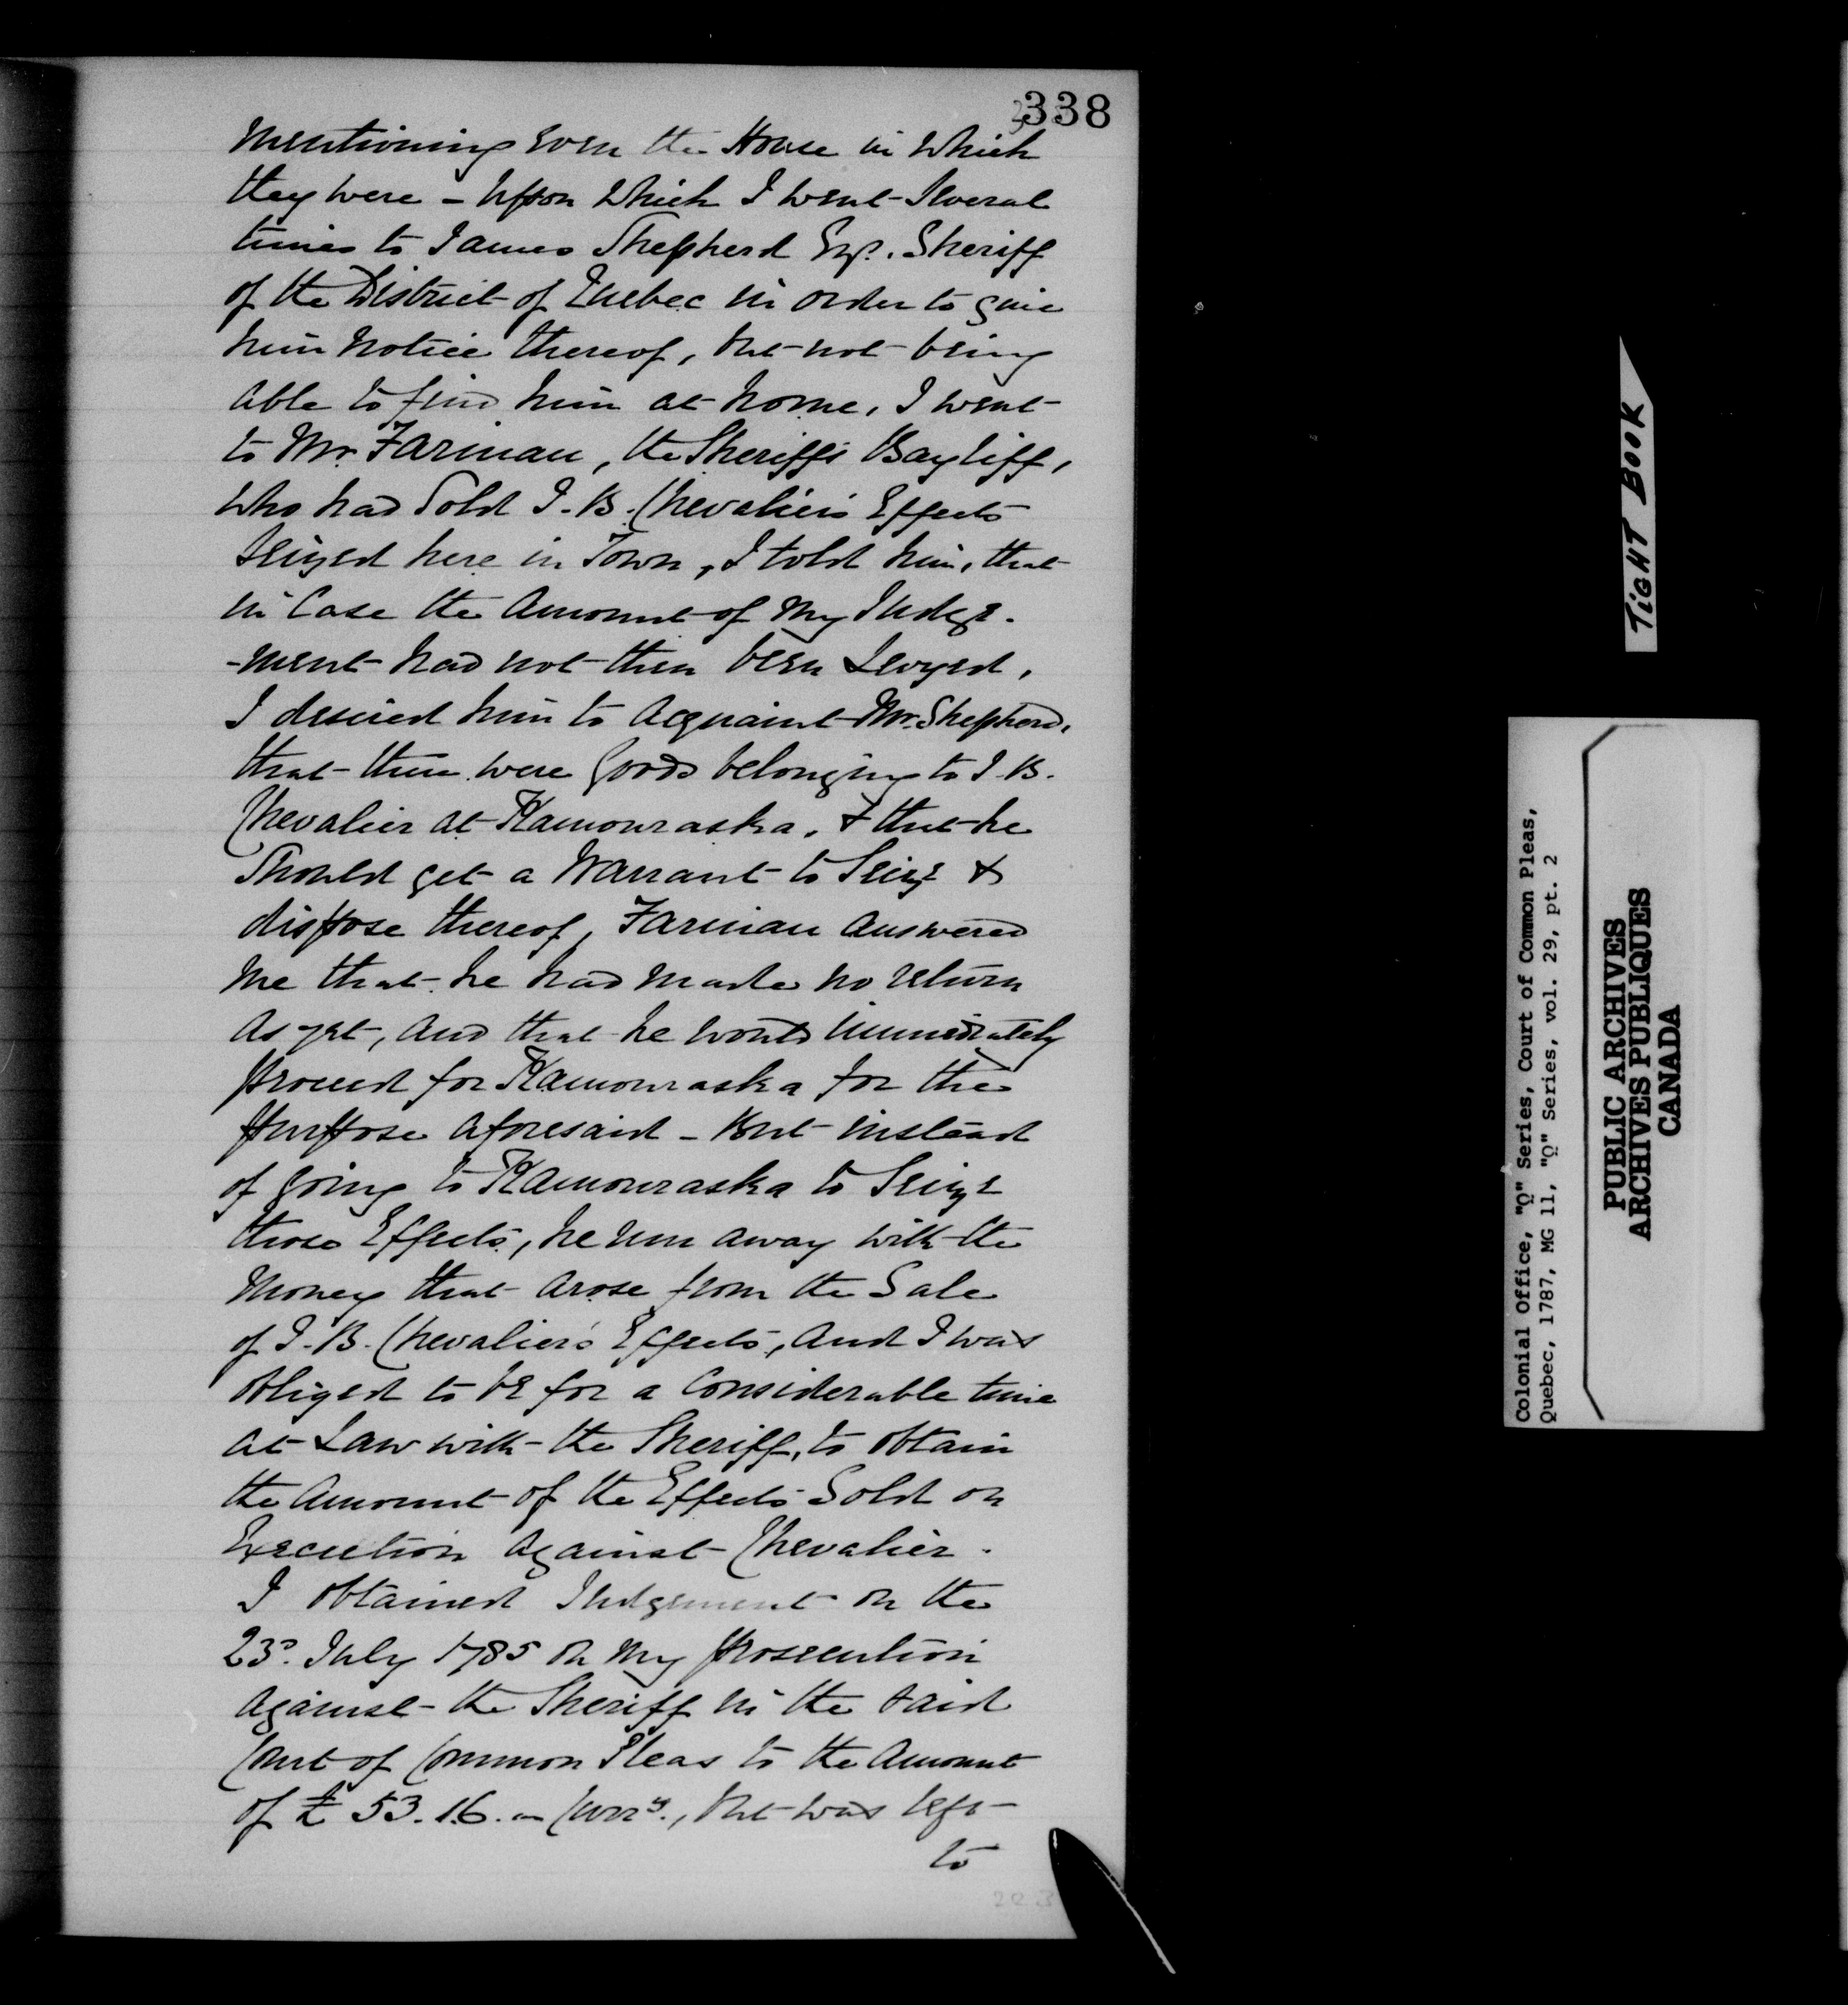 338
mentioning even the House in which
they were - upon which I went Several
times to James Shepherd Esqr. Sheriff
of the District of Quebec in order to give
him notice thereof, but not being
able to find him at home, I went
to Mr. Farinau, the Sheriffs Bayliff,
who had Sold J. B. Chevalier's Effects
seized here in Town, I told him, that
in Case the Amount of my Judge-
-ment had not then been Levyed,
I desired him to acquaint Mr. Shepherd,
that there were Goods belonging to J. B.
Chevalier at Kamouraska, & that he
Should get a Warrant to Seize &
dispose thereof, Farinau answered
me that he had made no return
as yet, and that he would immediately
proceed for Kamouraska for the
purpose aforesaid - But instead
of going to Kamouraska to Seize
those Effects, he run away with the
money that arose from the Sale
of J. B. Chevalier's Effects, and I was
obliged to be for a Considerable time
at Law with the Sheriff, to obtain
the Amount of the Effects Sold on
Execution against Chevalier.
I obtained Judgement on the
23d. July 1785 on my prosecution
against the Sheriff in the said
Court of Common Pleas to the Amount
of £ 53. 16. - Curry., but was left
to
TIGHT BOOK
Colonial Office, "Q" Series, Court of Common Pleas,
Quebec, 1787, MG 11, "Q" Series, vol. 29, pt. 2
PUBLIC ARCHIVES
ARCHIVES PUBLIQUES
CANADA